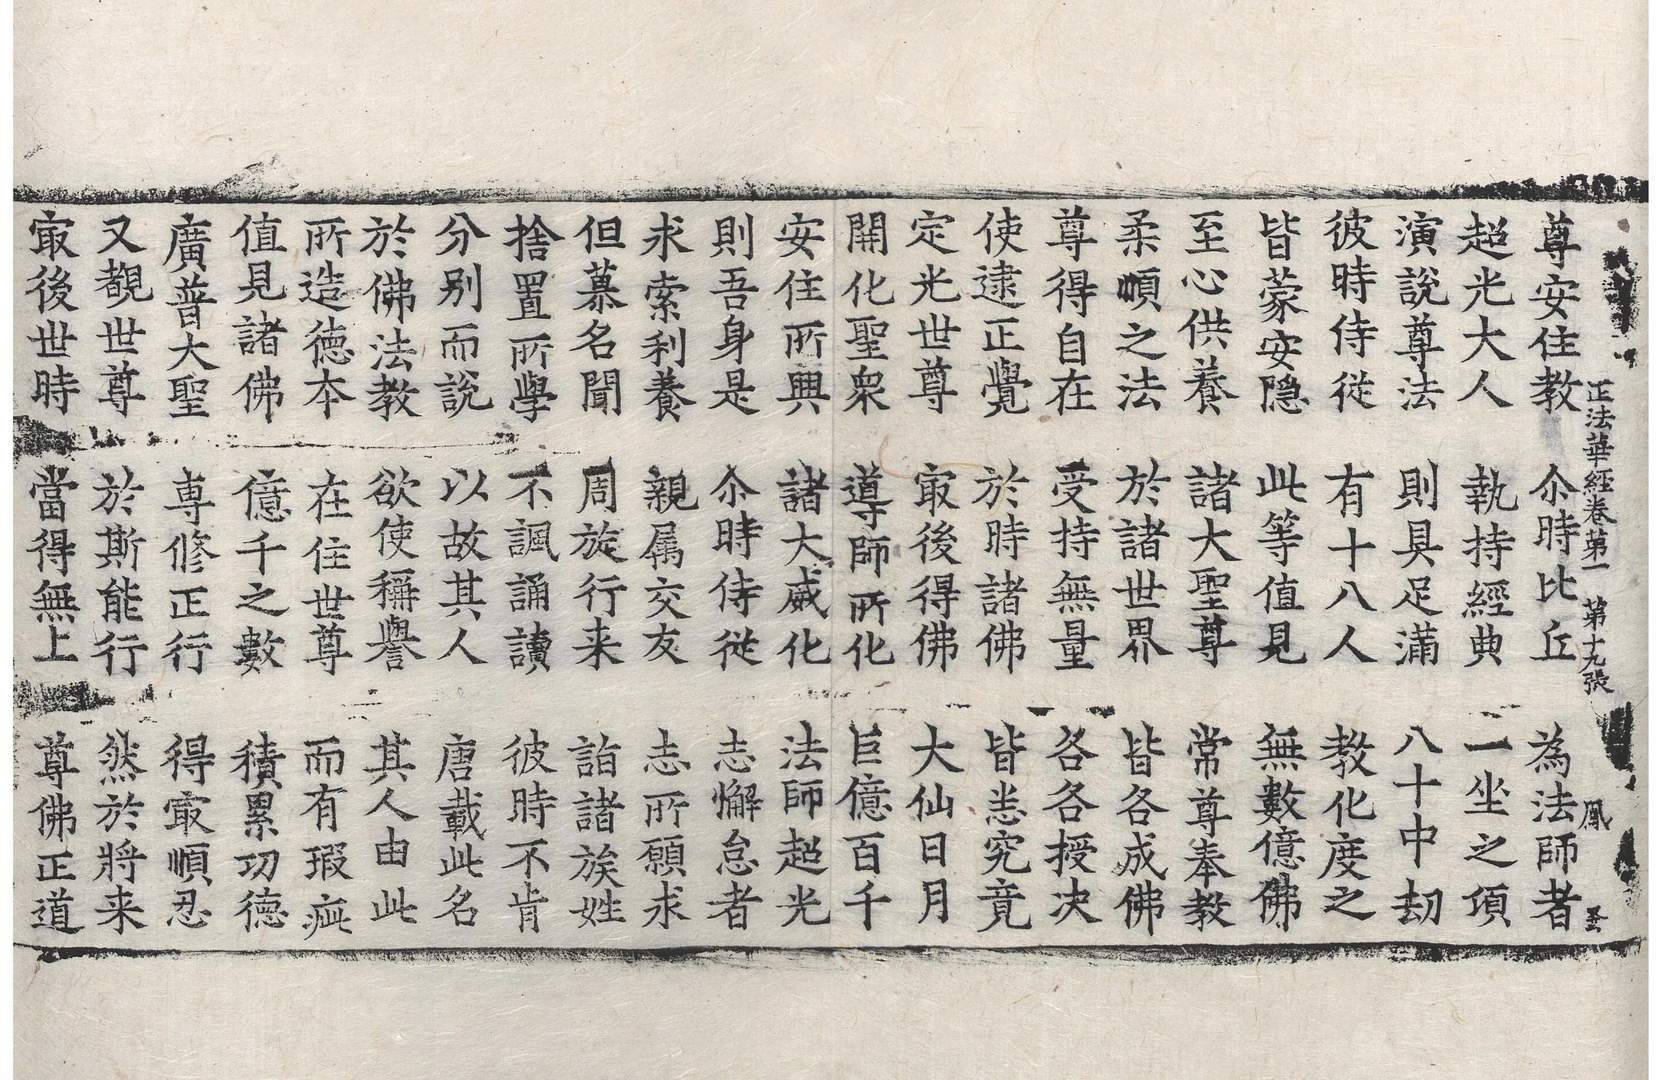 正法華經卷第一 第十九張 鳳
尊安住教 尒時比丘 為法師者
超光大人 執持經典 一坐之頃
演說尊法 則具足滿 八十中劫
彼時侍從 有十八人 教化度之
皆蒙安隱 此等值見 無數億佛
至心供養 諸大聖尊 常尊奉教
柔順之法 於諸世界 皆各成佛
尊得自在 受持無量 各各授决
使逮正覺 於時諸佛 皆悉究竟
定光世尊 㝡後得佛 大仙日月
開化聖衆 導師所化 巨億百千
安住所興 諸大威化 法師超光
則吾身是 尒時侍從 志懈怠者
求索利養 親属交友 志所願求
但慕名聞 周旋行来 詣諸族姓
捨置所學 不諷誦讀 彼時不肯
分別而說 以故其人 唐載此名
於佛法教 欲使稱譽 其人由此
所造德本 在住世尊 而有瑕疵
值見諸佛 億千之數 積累功德
廣普大聖 専修正行 得㝡順忍
又覩世尊 於斯能行 然於將来
㝡後世時 當得無上 尊佛正道